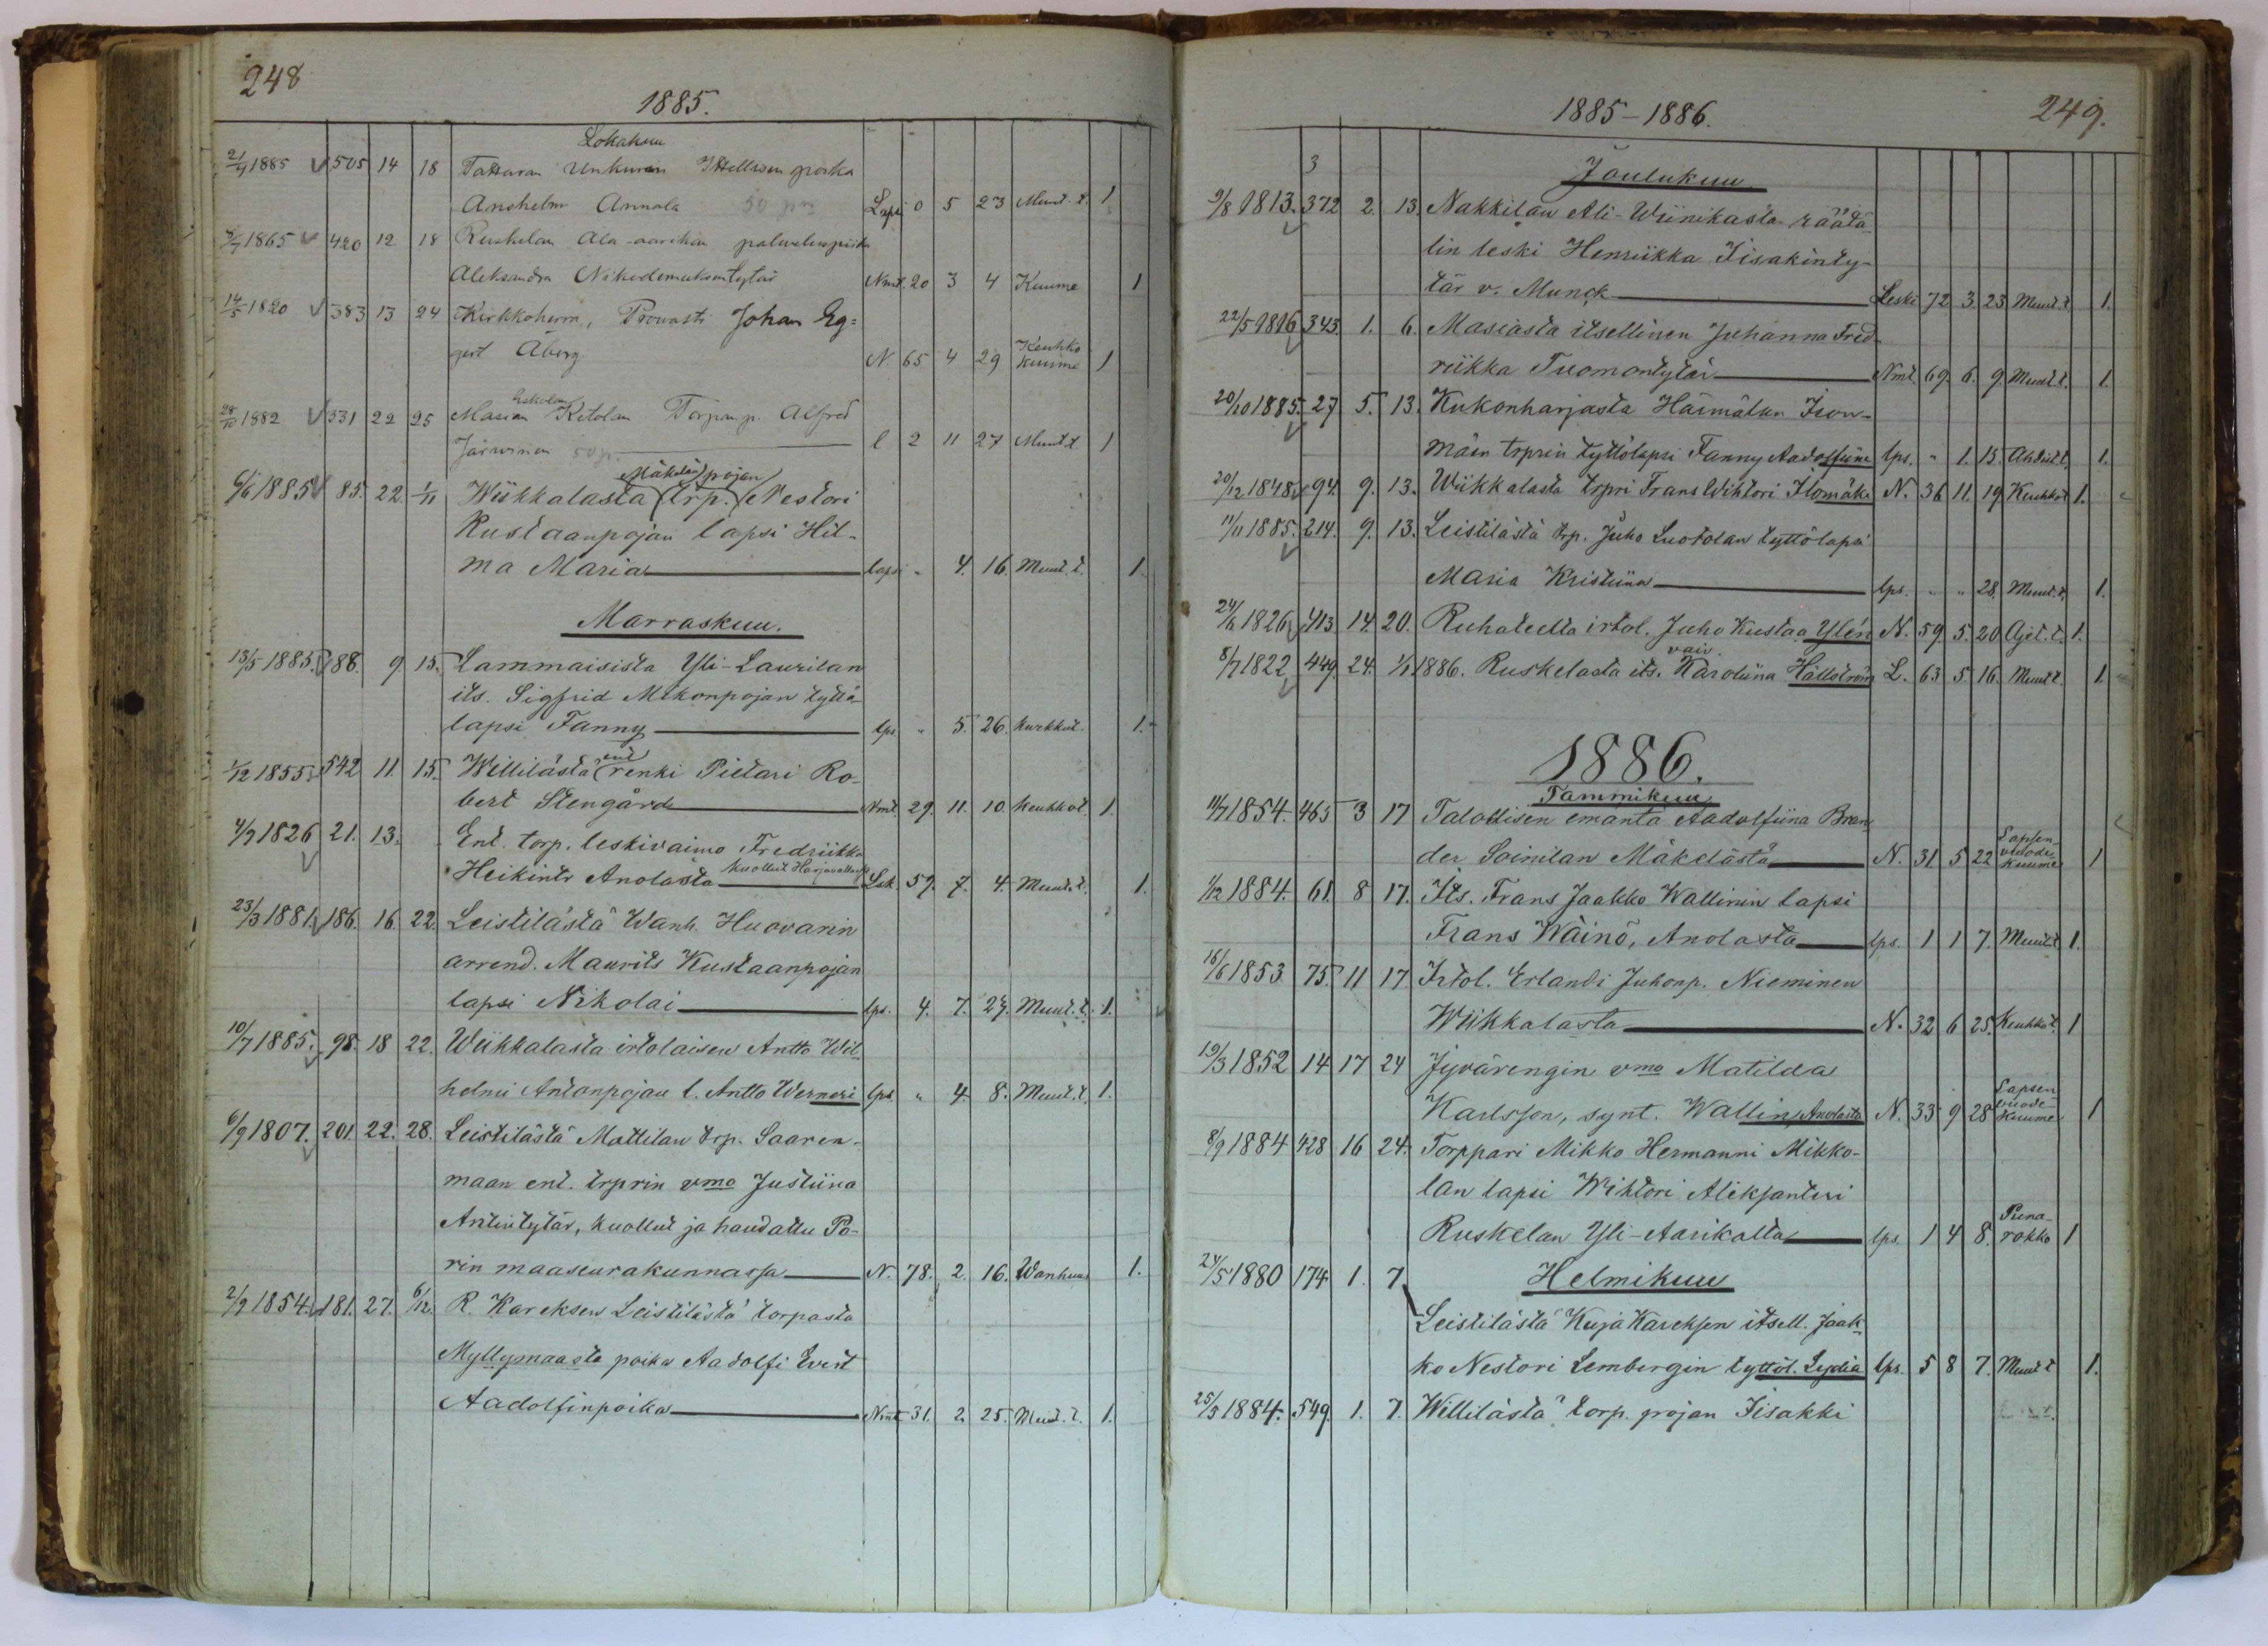 248
1885.
Lokakuu
21/4 1885 505 14 18 Tattaran Unkurin Itsellisen poika
Anshelm Annala 50 pm Lapsi 0 5 23 Muut. t. 1
5/7 1865 420 12 18 Ruskelan Ala-aarikan palveluspiika
Aleksandra Nikodemuksentytär Nmt. 20 3 4 Kuume 1
14/5 1820 383 13 24 Kirkkoherra, Provasti Johan Eg=
gert Åberg N. 65 4 29 Keuhko kuume 1
28/10 1882 331 22 25 Masian Ketolan Torpan p. Alfred
Järvinen l 2 11 27 Muut.t 1
Mäkelän pojan
6/6 1885 85. 22. 1/11 Wiikkalasta (trp.) Nestori
Kustaanpojan lapsi Hil-
ma Maria lapsi " 4. 16. Muut. t. 1.
Marraskuu.
13/5 1885. 188. 9 15. Lammaisista Yli-Laurilan
its. Sigfrid Mikonpojan tyttö-
lapsi Fanny lps " 5. 26. Kurkkut. 1.
ent
1/12 1855. 542 11. 15. Willilästä renki Pietari Ro-
bert Stengård Nmt. 29. 11. 10. Keuhkot. 1.
4/7 1826 21. 13. Ent. torp. leskivaimo Fredriikka
Heikintr Anolasta kuollut Harjavallassa Lsk. 59. 7. 4. Muut. t. 1.
23/3 1881. 186. 16. 22. Leistilästä Wanh. Huovarin
arrend. Maurits Kustaanpojan
lapsi Nikolai lps. 4. 7. 24. Muut. t. 1.
10/7 1885. 98. 18 22. Wiikkalasta irtolaisen Antto Wil-
helmi Antonpojan l. Antto Werneri lps. " 4. 8. Muut. t. 1.
6/9 1807. 201. 22. 28. Leistilästä Mattilan trp. Saaren-
maan ent. trprin vmo Justiina
Antintytär, kuollut ja haudattu Po-
rin maaseurakunnassa N. 78. 2. 16. Wanhuus 1.
2/9 1854. 181. 27. 6/12. R. Kareksen Leistilästä torpasta
Myllymaasta poika Aadolfi Evert
Aadolfinpoika Nmt 31. 2. 25. Muut. t. 1.
1885-1886.
249.
3
Joulukuu
9/8 1813. 372 2. 13. Nakkilan Ali-Wiinikasta räätä-
lin leski Henriikka Iisakinty-
tär v. Munck Leski 72 3. 23 Muut. t 1.
22/5 1816 343. 1. 6. Masiasta itsellinen Juhanna Fred-
riikka Tuomontytär Nmt. 69. 6. 9 Muut t. 1.
20/10 1885. 27 5. 13. Kukonharjasta Häimälän Ison-
mäen trprin tyttölapsi Fanny Aadolfiina lps. " 1. 15. Ahdist. 1.
20/12 1848. 94. 9. 13. Wiikkalasta trpri Frans Wihtori Ilomäki N. 36 11. 19 Keuhkot 1.
11/11 1885. 214. 9. 13. Leistilästä trp. Juho Luotolan tyttölapsi
Maria Kristiina lps. " " 28. Muut. t. 1.
24/6 1826 413 14. 20. Ruhateelta irtol. Juho Kustaa Ylén N. 59. 5. 20 Ajet. t. 1.
vaiv.
8/7 1822 449. 24. 1/1 1886. Ruskelasta its. Karoliina Hällström L. 63 5 16. Muut t. 1.
1886.
Tammikuu
11/7 1854. 465 3 17 Talollisen emäntä Aadolfiina Bran-
der Soinilan Mäkelästä N. 31 5 22 Lapsen- vuode- kuume 1
1/12 1884. 61. 8 17. Its. Frans Jaakko Wallinin lapsi
Frans Wäinö, Anolasta lps. 1 1 7. Muut t 1.
16/6 1853 75. 11 17 Irtol. Erlandi Juhonp. Nieminen
Wiikkalasta N. 32 6 25. Keuhkot. 1
19/3 1852 14 17 24 Jyvärengin vmo Matilda
Karlsson, synt. Wallin, Anolasta N. 33 9 28 Lapsen vuode- kuume 1
8/9 1884 428 16 24. Torppari Mikko Hermanni Mikko-
lan lapsi Wihtori Aleksanteri
Ruskelan Yli-Aarikalta lps. 1 4 8. Puna- rokko 1
24/5 1880 174. 1. 7 Helmikuu
Leistilästä Kuja Kareksen itsell. Jaak-
ko Nestori Lembergin tyttöl. Lydia lps. 5 8 7. Muut t 1.
25/3 1884. 549. 1. 7. Willilästä torp. pojan Iisakki